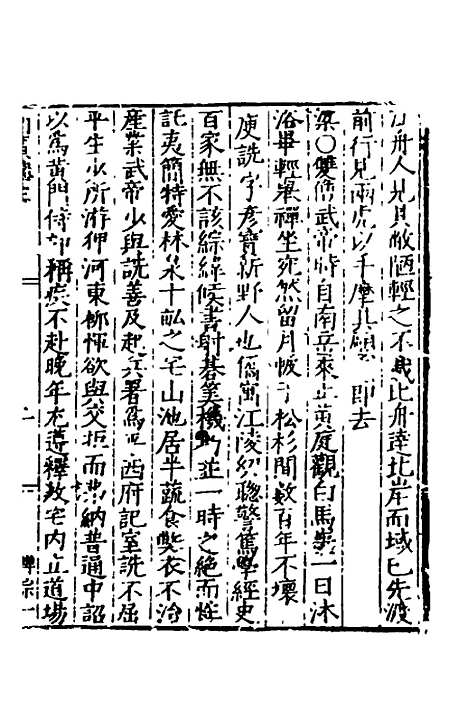 舟人見其敝陋輕之不載比舟達北岸而域已先渡
前行見兩虎以手摩其頭 即去
梁○雙僧武帝時自南岳來止黃庭觀白馬巖一日沐
浴畢輕舉禪坐宛然留月帔于松杉間數百年不壞
庾詵字彥寶新野人也僑寓江陵幼聰警篤學經史
百家無不該綜緯候書射碁筭機巧並一時之絕而性
託夷簡特愛林泉十畝之宅山池居半蔬食弊衣不治
產業武帝少與詵善及起兵署爲平西府記室詵不屈
平生少所游狎河東柳惲欲與交拒而弗納普通中詔
以爲黃門侍郎稱疾不赴晚年尤遵釋教宅内立道場